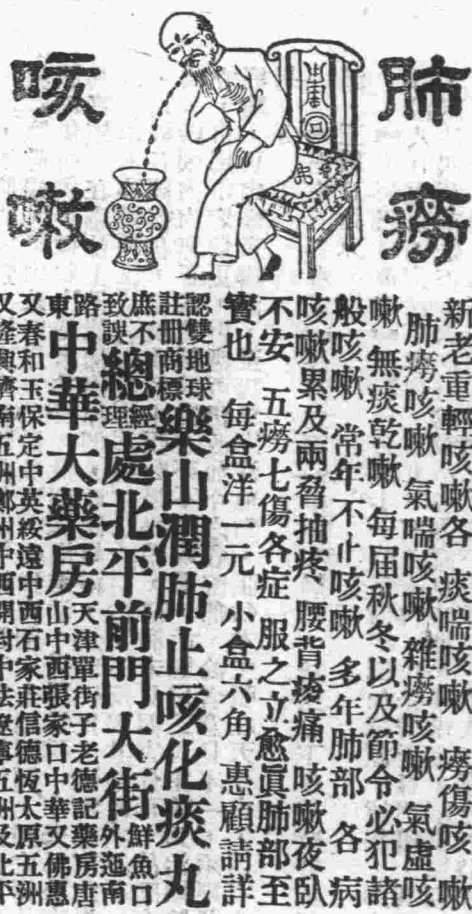 肺癆
咳嗽
新老重輕咳嗽各 痰喘咳嗽 癆傷咳嗽
肺癆咳嗽 氣喘咳嗽 雜癆咳嗽 氣虛咳
嗽 無痰乾嗽 每屆秋冬以及節令必犯諸
般咳嗽 常年不止咳嗽 多年肺部各病
咳嗽累及兩脅抽疼 腰背痠痛 咳嗽夜臥
不安 五癆七傷各症 服之立愈眞肺部至
寶也 每盒洋一元 小盒六角 惠顧請詳
認雙地球
註冊商標
樂山潤肺止咳化痰丸
庶不
致誤
總經理處北平前門大街
鮮魚口
外迤南
路
東
中華大藥房
天津單街子老德記藥房唐
山中西張家口中華又佛惠
又春和玉保定中英綏遠中西石家莊信德恆太原五洲
又隆興齊南五州鄭州中西開封中法遼寧五州及北平